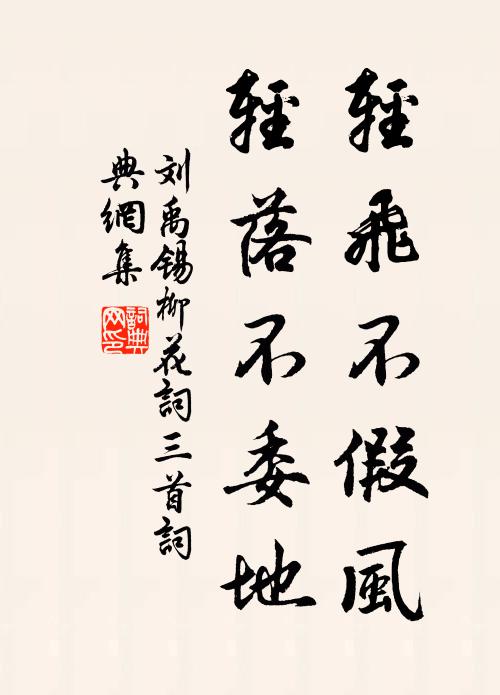 輕飛不假風
輕落不委地
刘禹锡柳花詞三首詞
典網集
詞典
网印